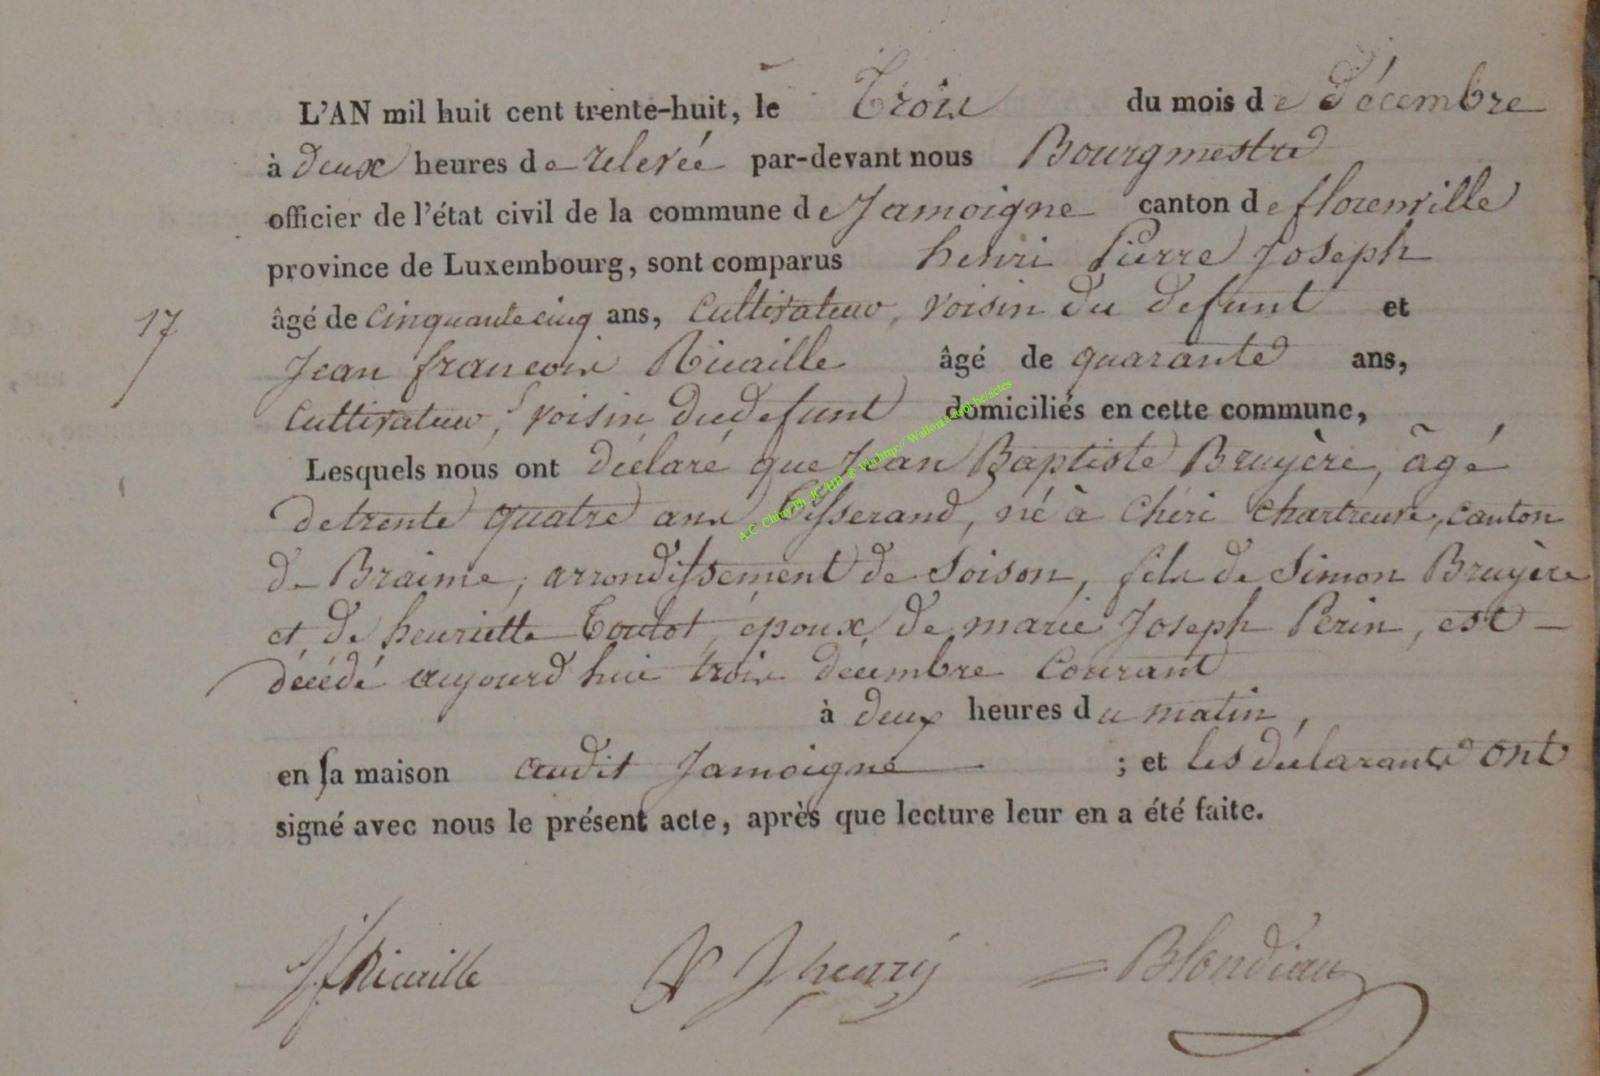 L'AN mil huit cent trente-huit, le Trois du mois de décembre
à deux heures de relevée par-devant nous Bourgmestre
officier de l'état civil de la commune de Jamoigne canton de florenville
province de Luxembourg, sont comparus henri Pierre Joseph
17 âgé de cinquante cinq ans, Cultivateur, voisin du defunt et
Jean françois Ricaille âgé de quarante ans,
Cultivateur, voisin du defunt domiciliés en cette commune,
Lesquels nous ont déclaré que Jean Baptiste Bruyère, âgé
de trente quatre ans Tisserand, né à Chéri Chartreuse, canton
de Braime, arrondissement de Soison, fils de Simon Bruyère
et de henriette Toutot, époux de marie Joseph Perin, est
décédé aujourd'hui trois décembre Courant
à deux heures du matin,
en sa maison audit Jamoigne ; et les déclarants ont
signé avec nous le présent acte, après que lecture leur en a été faite.
Jf Ricaille P J henry Blondiau